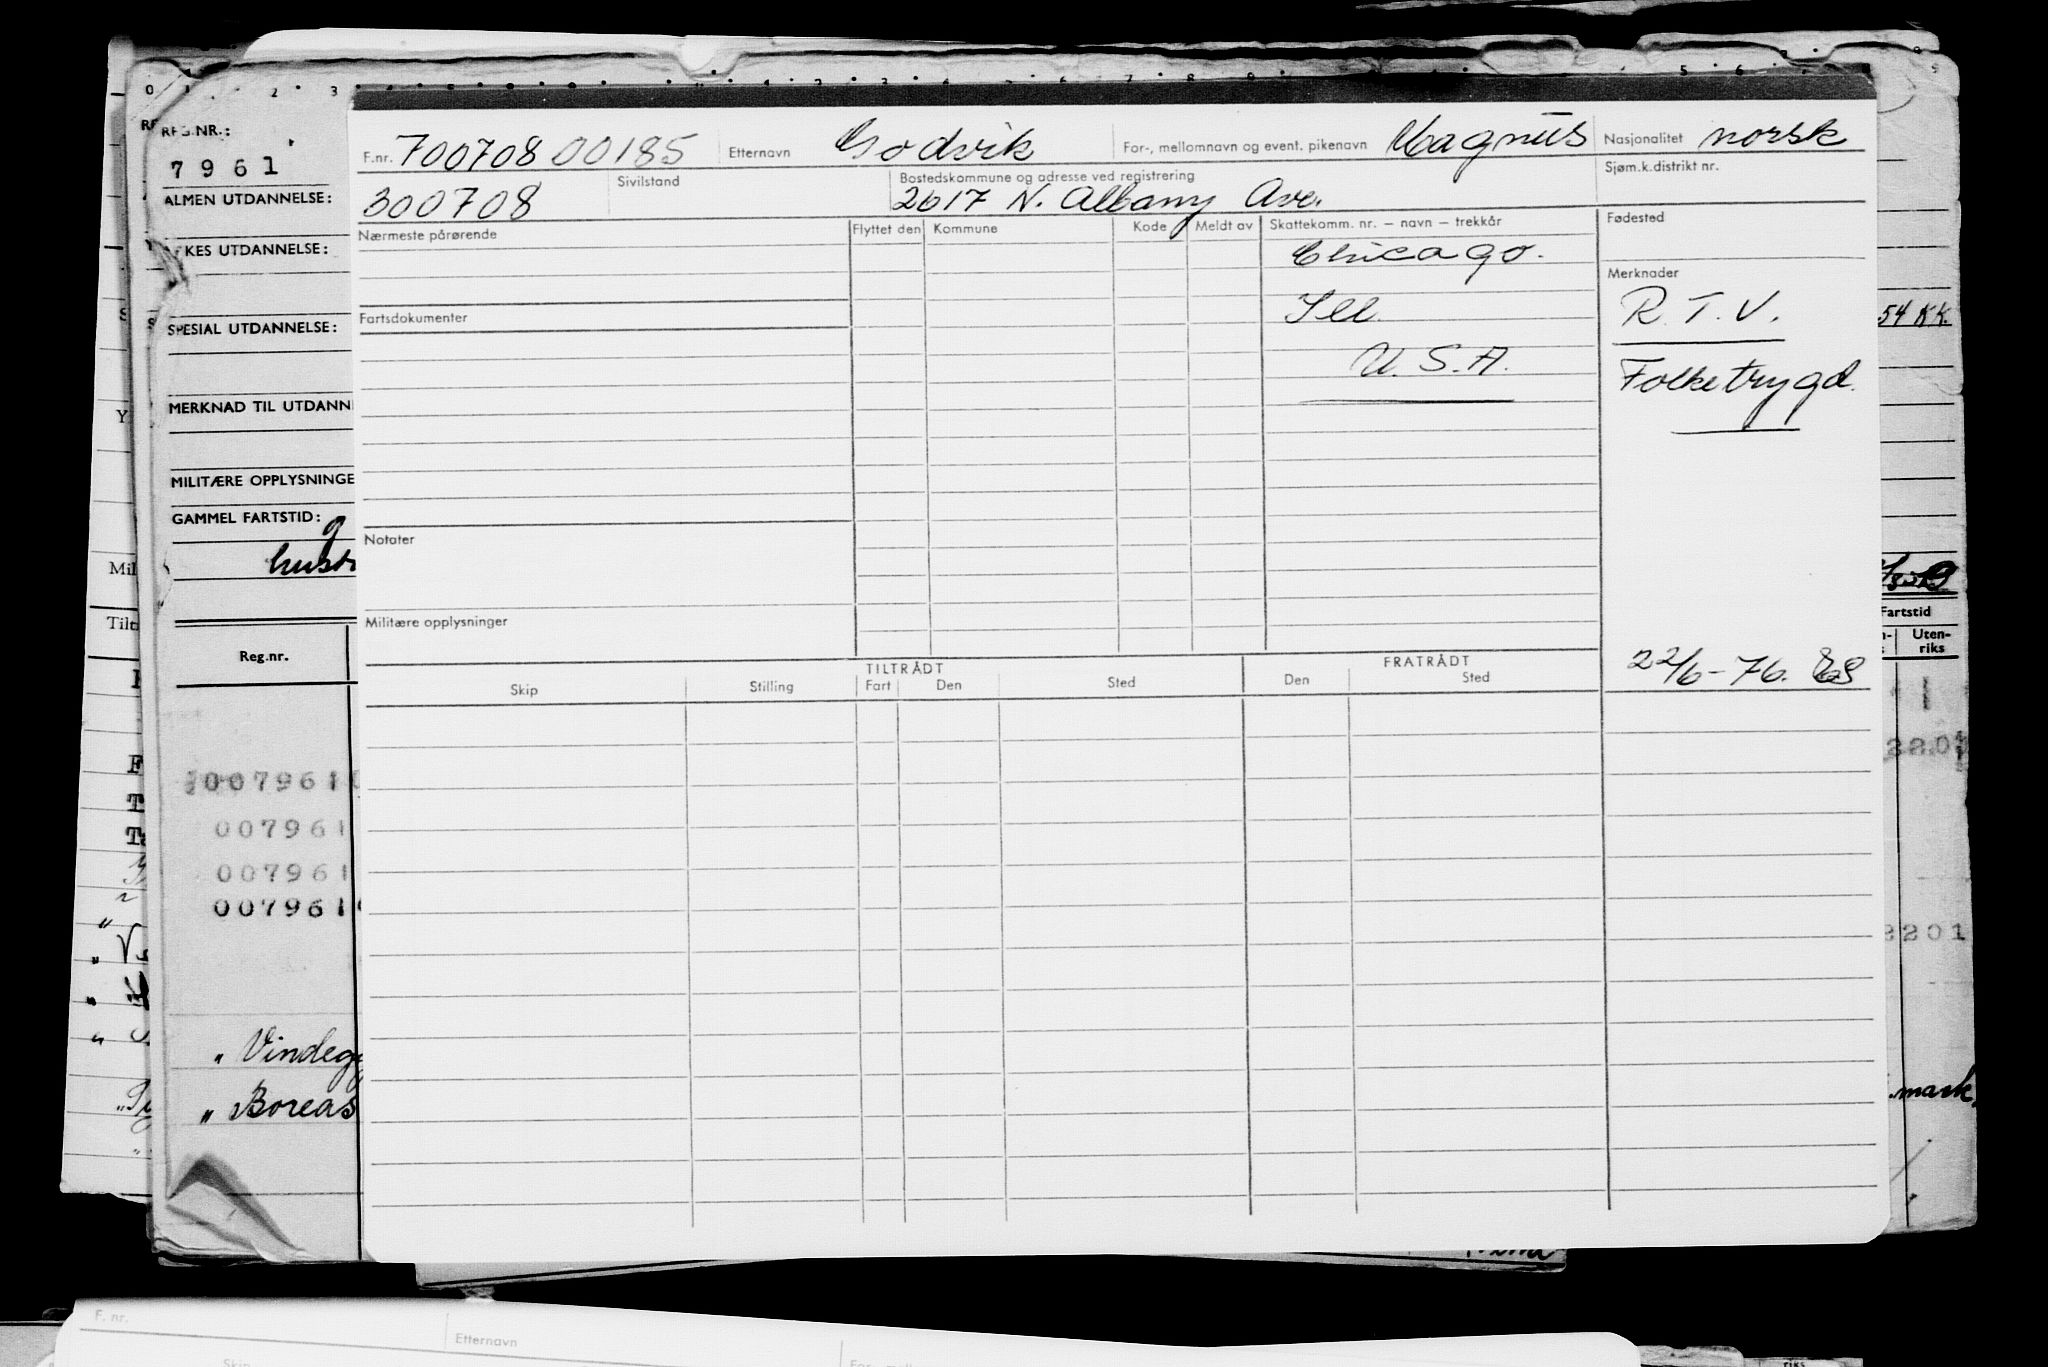 REG.NR.:
7961
ALMEN UTDANNELSE:
KES UTDANNELSE:
SPESIAL UTDANNELSE:
MERKNAD TIL UTDANN
MILITÆRE OPPLYSNINGE
GAMMEL FARTSTID:
Reg.nr.
007961
007961
007961
007961
" Vindeg
" Boreas
F.nr. 70070800185 Etternavn Godvik For-, mellomnavn og event. pikenavn Magnus Nasjonalitet norsk
300708 Sivilstand Bostedskommune og adresse ved registrering Sjøm.k.distrikt nr.
2617 N. Albany Ave.
Nærmeste pårørende Flyttet den Kommune Kode Meldt av Skattekomm. nr. – navn – trekkår Fødested
Chicago.
Merknader
Ill.
R.T.V.
Fartsdokumenter
U.S.A.
Folketrygd.
Notater
Militære opplysninger
22/6-76.
TILTRÅDT FRATRÅDT
Skip Stilling Fart Den Sted Den Sted
54 KK.
Fartstid
Uten-
riks
2201
mark.
Mil
F. nr.
Etternavn
Skip
riks